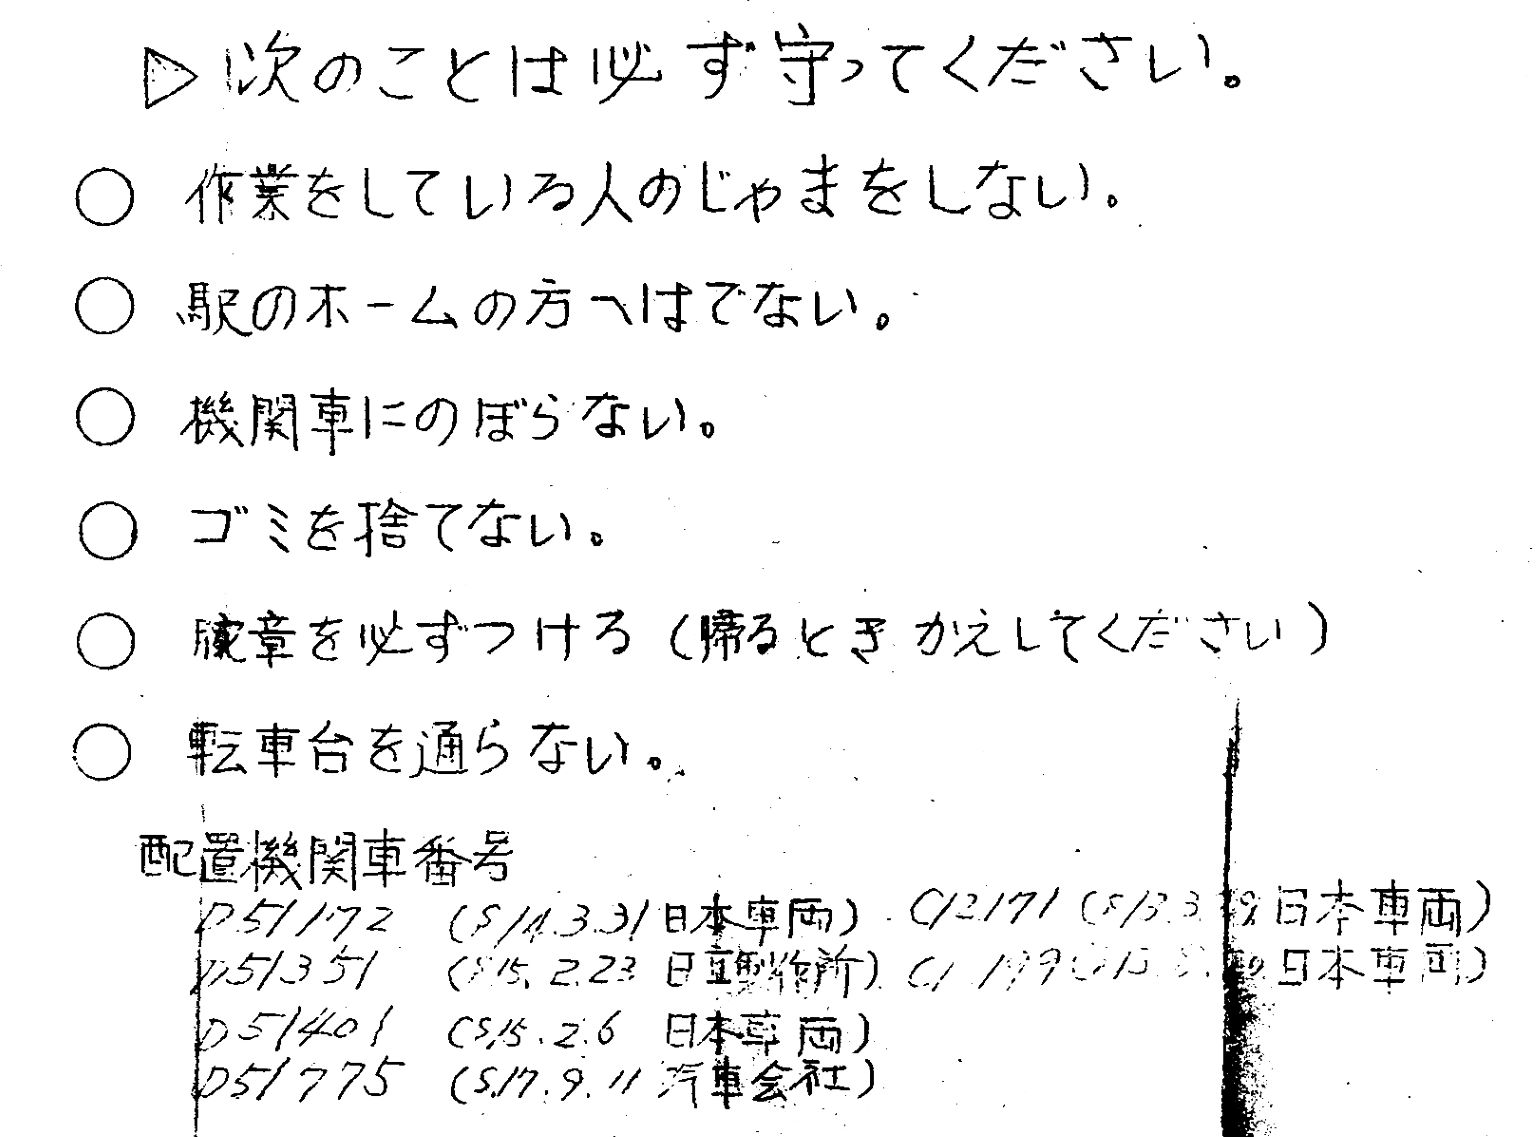 ▷次のことは必ず守ってください。
○ 作業をしている人のじゃまをしない。
○ 駅のホームの方へはでない。
○ 機関車にのぼらない。
○ ゴミを捨てない。
○ 腕章を必ずつける(帰るときかえしてください)
○ 転車台を通らない。
配置機関車番号
D51172 (S14.3.31日本車両) C12171 (S13.3. 日本車両)
D51351 (S15.2.23 日立製作所) C1 199 (15. 日本車両)
D51401 (S15.2.6 日本車両)
D51775 (S.17.9.11 汽車会社)